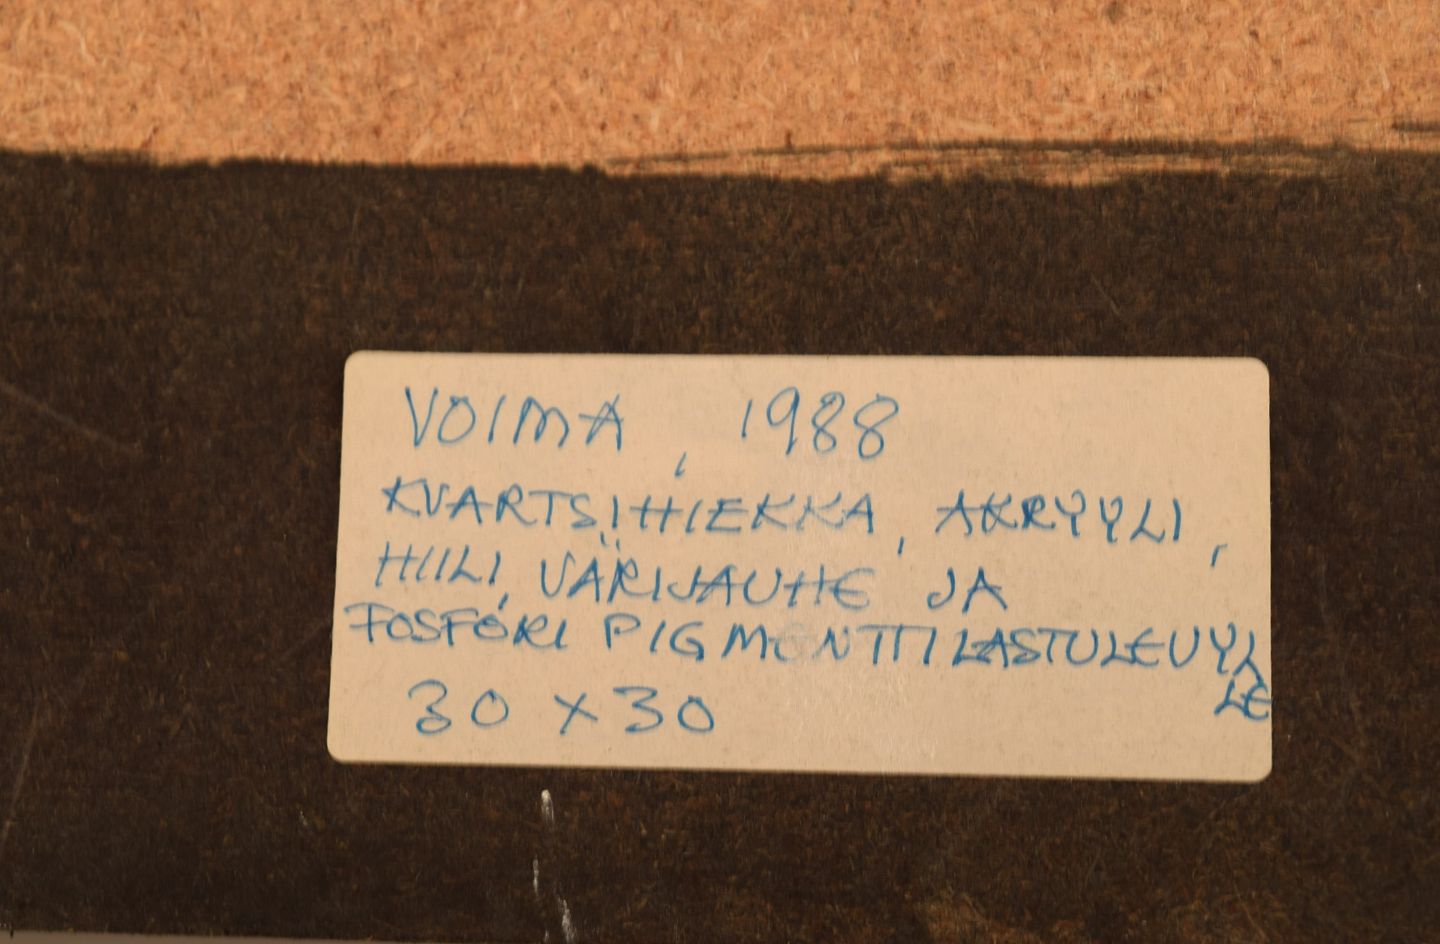 VOIMA, 1988
KVARTSIHIEKKA, AKRYYLI,
HIILI, VÄRIJAUHE JA
FOSFORI PIGMENTTI LASTULEVYL
LE
30 x 30